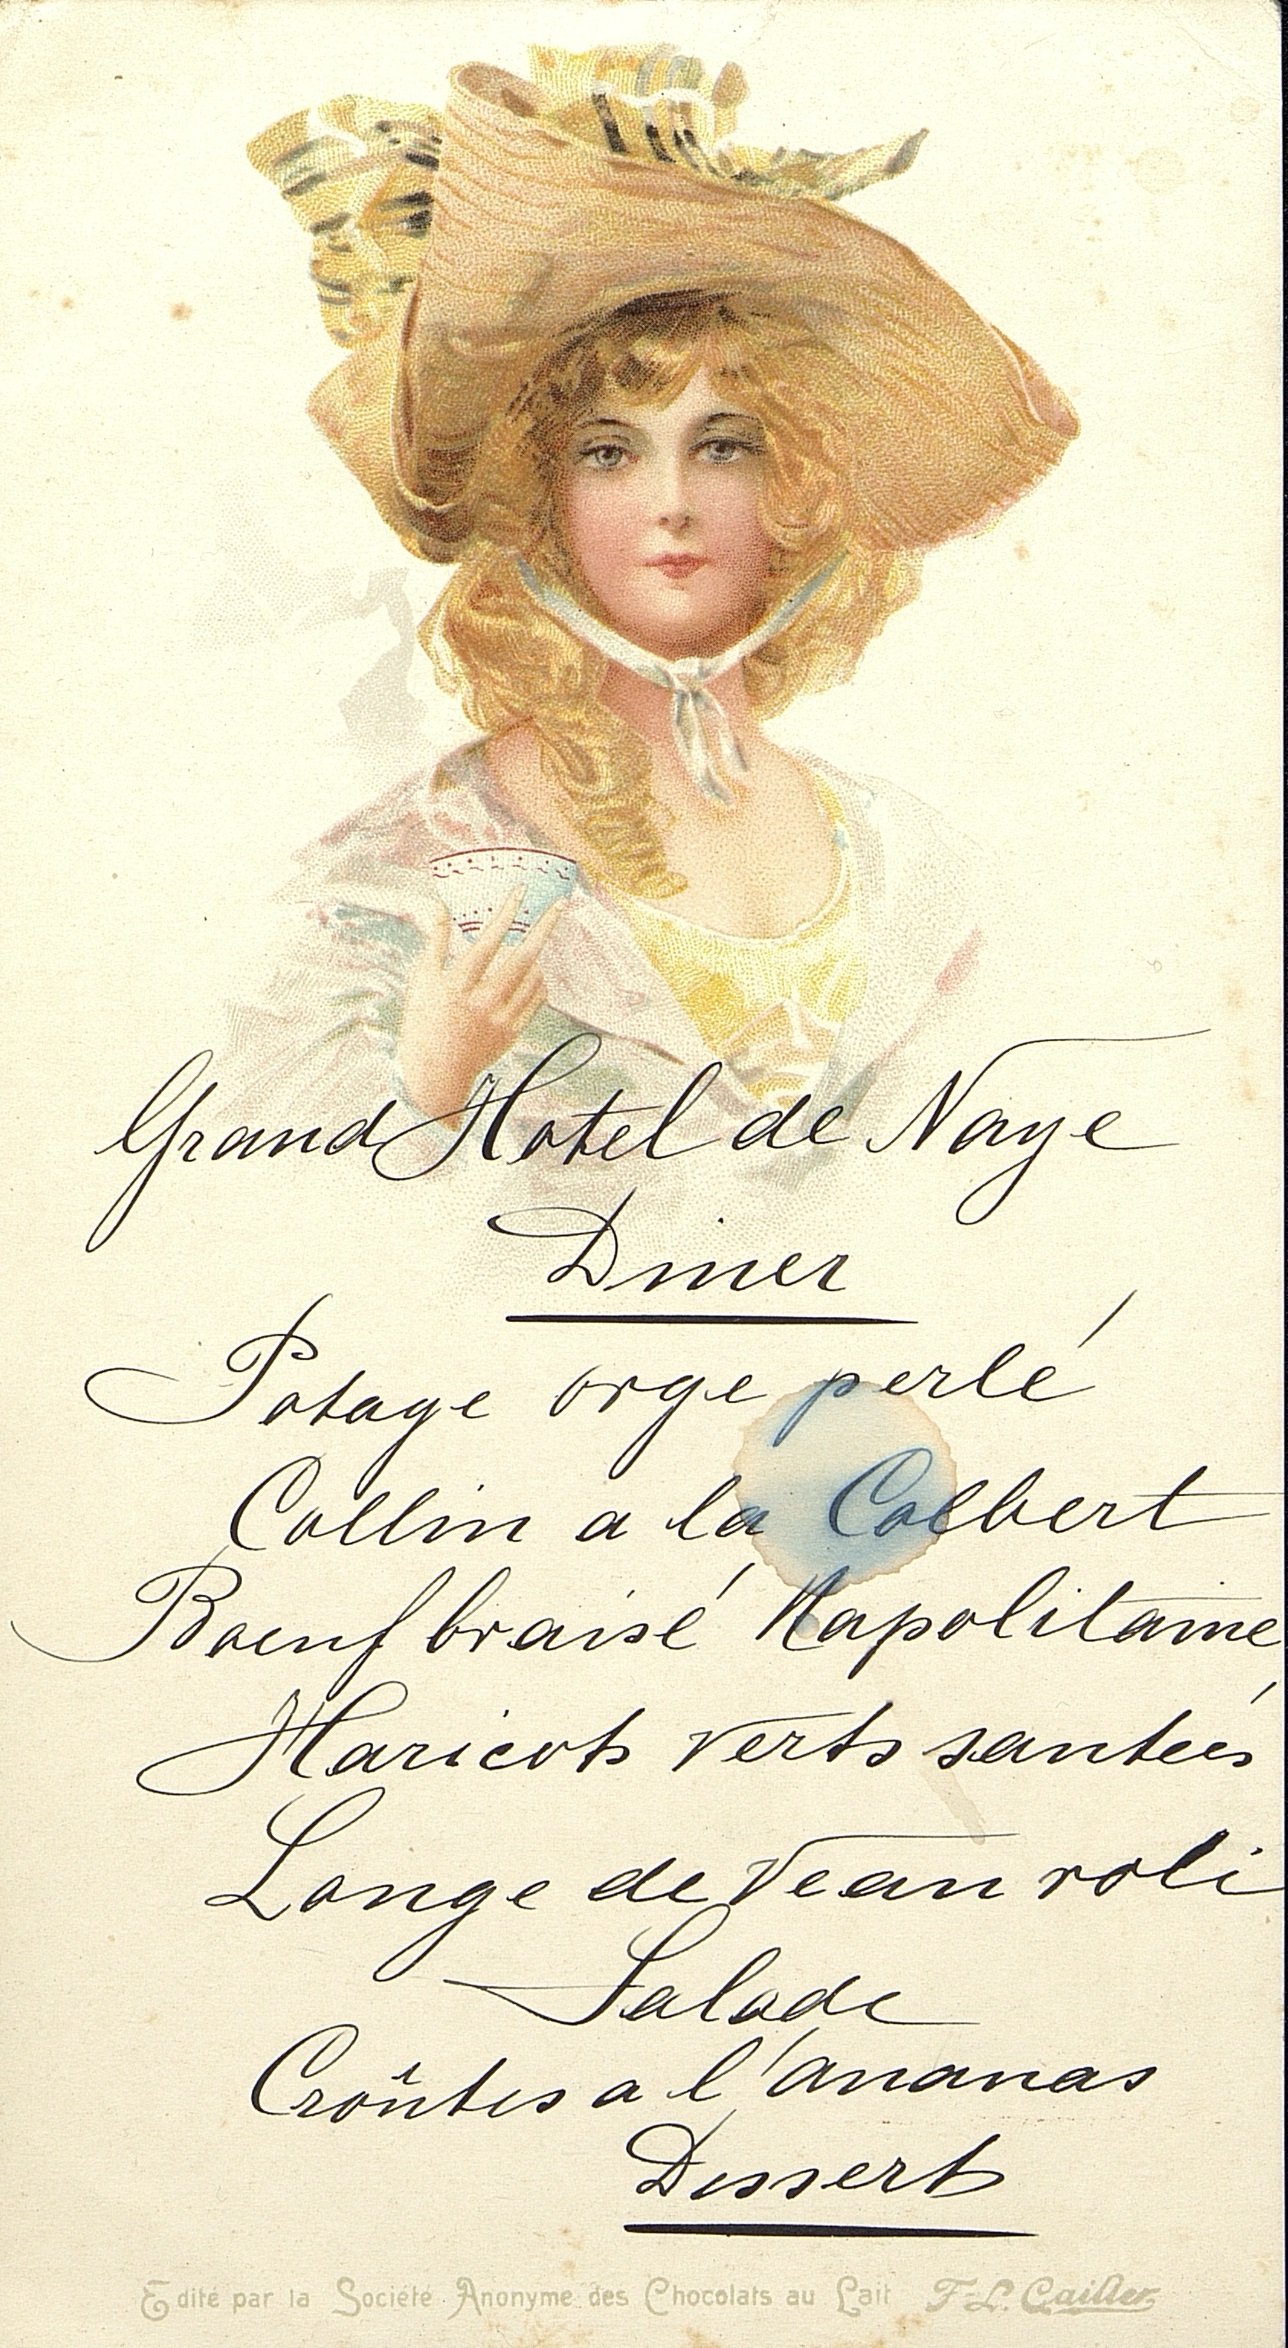 Grand Hotel de Naye
Diner
Potage orge perlé
Collin a la Colbert
Boeuf braisé Napolitaine
Haricots verts sautées
Longe de Veau roti
Salade
Croûtes a l'ananas
Desserts
Edité par la Société Anonyme des Chocolats au Lait F-L. Cailler